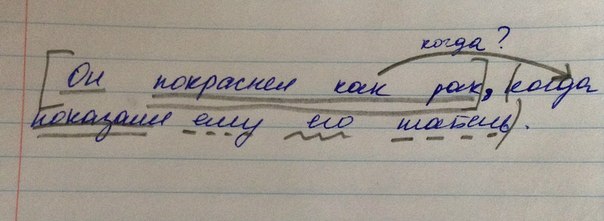 когда?
[Он покраснел как рак], (когда
показали ему его табель).